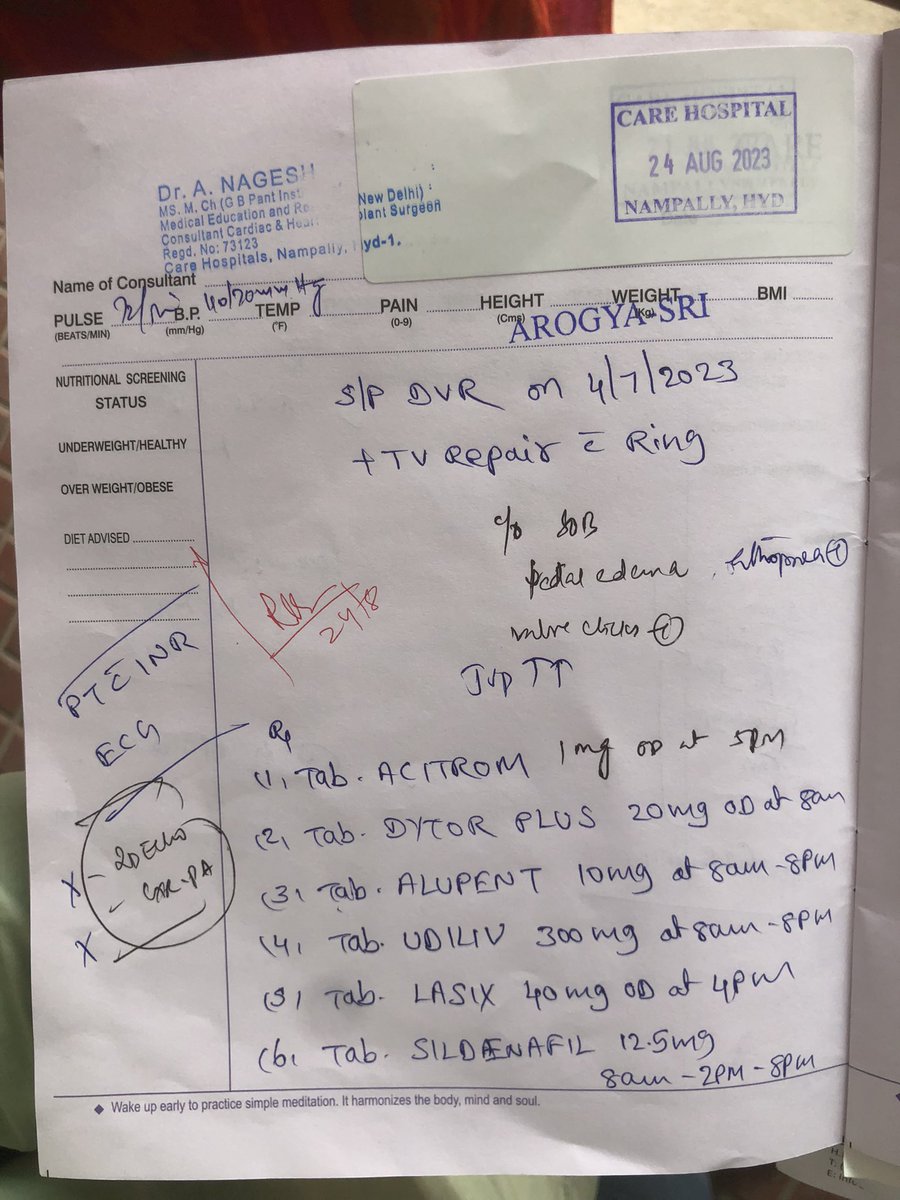 CARE HOSPITAL
24 AUG 2023
NAMPALLY, HYD.
Dr. A. NAGESH
MS. M. Ch (G B Pant Inst New Delhi)
Medical Education and Re plant Surgeon
Consultant Cardiac &
Regd. No: 73123
Care Hospitals, Nampally, Hyd-1.
Name of Consultant
PULSE B.P. mm Hg TEMP PAIN HEIGHT WEIGHT BMI
(BEATS/MIN) (mm/Hg) (°F) (0-9) (Cms) (Kg)
AROGYA SRI
NUTRITIONAL SCREENING
STATUS
UNDERWEIGHT/HEALTHY
OVER WEIGHT/OBESE
DIET ADVISED
S/P DVR on 4/7/2023
+ TV Repair c̄ Ring
c/o SOB
pedal edema, orthopnea +
valve clicks +
JVP ↑↑
24/8
PT c̄ INR
ECG
- 2D ECHO
- CXR-PA
Rx
(1) Tab. ACITROM 1mg OD at 5PM
(2) Tab. DYTOR PLUS 20mg OD at 8am
(3) Tab. ALUPENT 10mg at 8am - 8PM
(4) Tab. UDILIV 300mg at 8am - 8PM
(5) Tab. LASIX 40mg OD at 4PM
(6) Tab. SILDAENAFIL 12.5mg
8am - 2PM - 8PM
◆ Wake up early to practice simple meditation. It harmonizes the body, mind and soul.